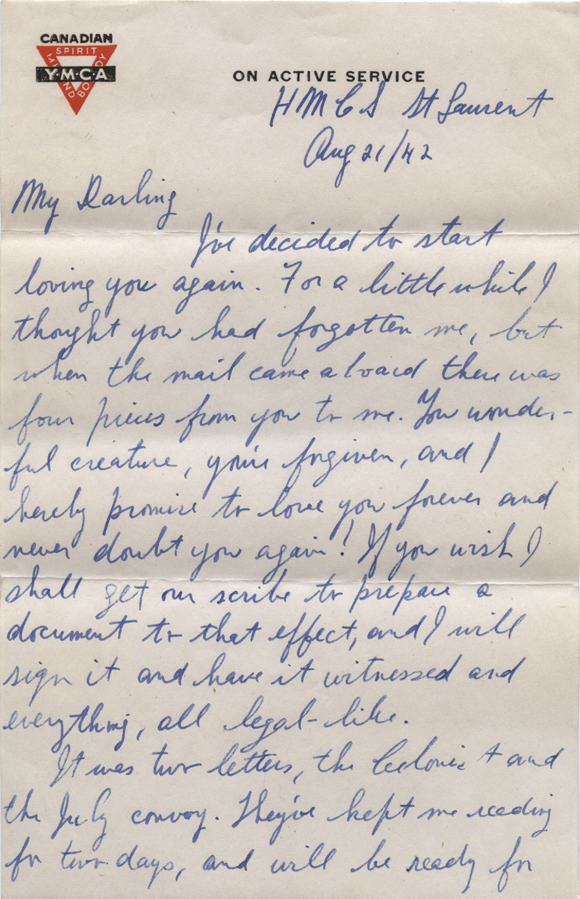 CANADIAN
SPIRIT
Y·M·C·A
MIND BODY
ON ACTIVE SERVICE
HMCS St Laurent
Aug 21/42
My Darling
I've decided to start
loving you again. For a little while I
thought you had forgotten me, but
when the mail came aboard there was
four pieces from you to me. You wonder-
ful creature, you're forgiven, and I
hereby promise to love you forever and
never doubt you again! If you wish I
shall get our scribe to prepare a
document to that effect, and I will
sign it and have it witnessed and
everything, all legal-like.
It was two letters, the Colonist and
the July convoy. They've kept me reading
for two days, and will be ready for